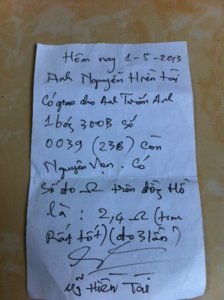 Hôm nay 1-5-2013
Anh Nguyễn Hiền Tài
Có giao cho Anh Trần Anh
1 bóg 300B số
0039 (23B) còn
Nguyên Vẹn. Có
Số đo Ω trên đồng Hồ
là : 2,4 Ω (tim
Rất tốt) (đo 3 lần)
Hiền Tài